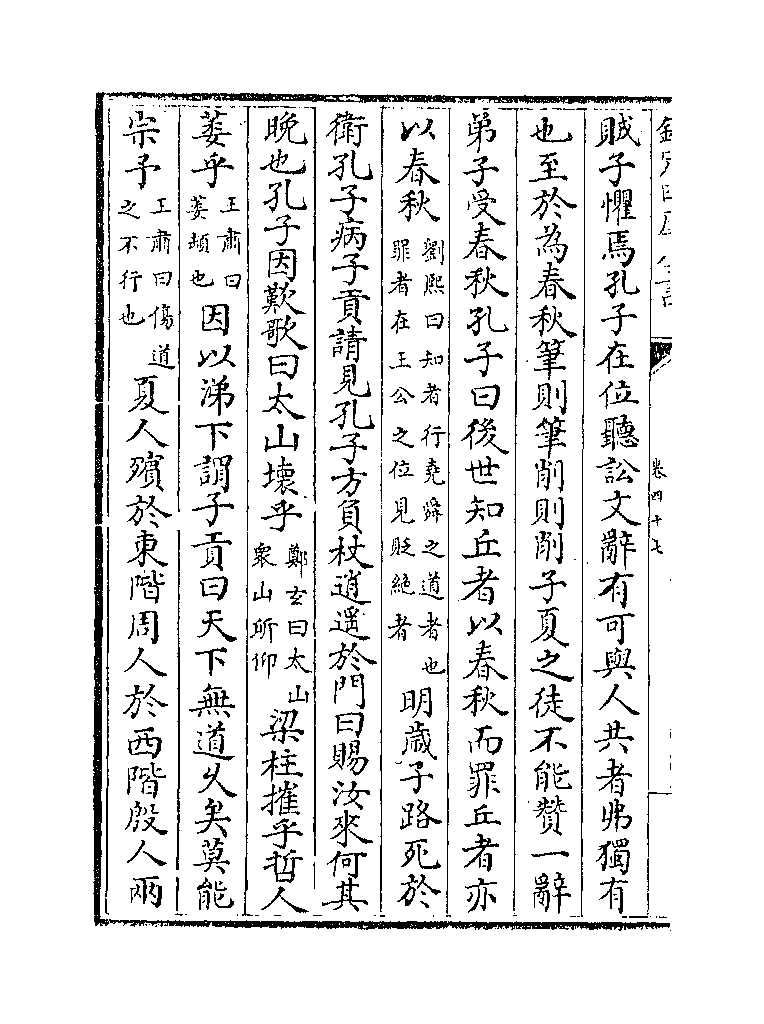 卷四十七
賊子懼焉孔子在位聽訟文辭有可與人共者弗獨有
也至於為春秋筆則筆削則削子夏之徒不能贊一辭
弟子受春秋孔子曰後世知丘者以春秋而罪丘者亦
以春秋劉熙曰知者行堯舜之道者也罪者在王公之位見貶絶者明歲子路死於
衛孔子病子貢請見孔子方負杖逍遥於門曰賜汝來何其
晚也孔子因歎歌曰太山壊乎鄭玄曰太山衆山所仰梁柱摧乎哲人
萎乎王肅曰萎頓也因以涕下謂子貢曰天下無道久矣莫能
宗予王肅曰傷道之不行也夏人殯於東階周人於西階殷人兩